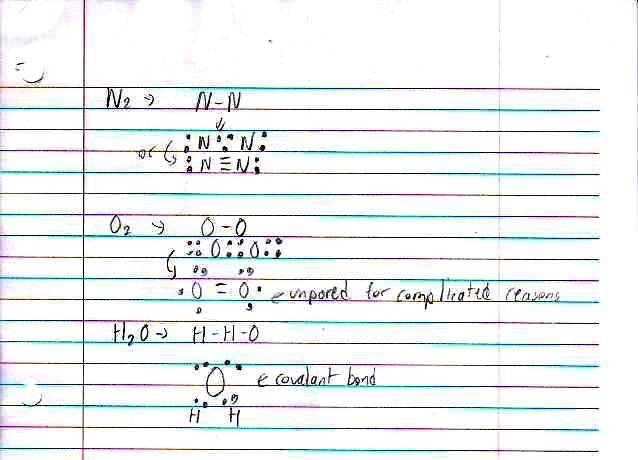 N2 → N-N
↓
or : N ⋮⋮ N :
: N ≡ N :
O2 → O-O
:: O :: O ::
· O = O · ← unpored for complicated reasons
H2O → H-H-O
O ← covalant bond
H H